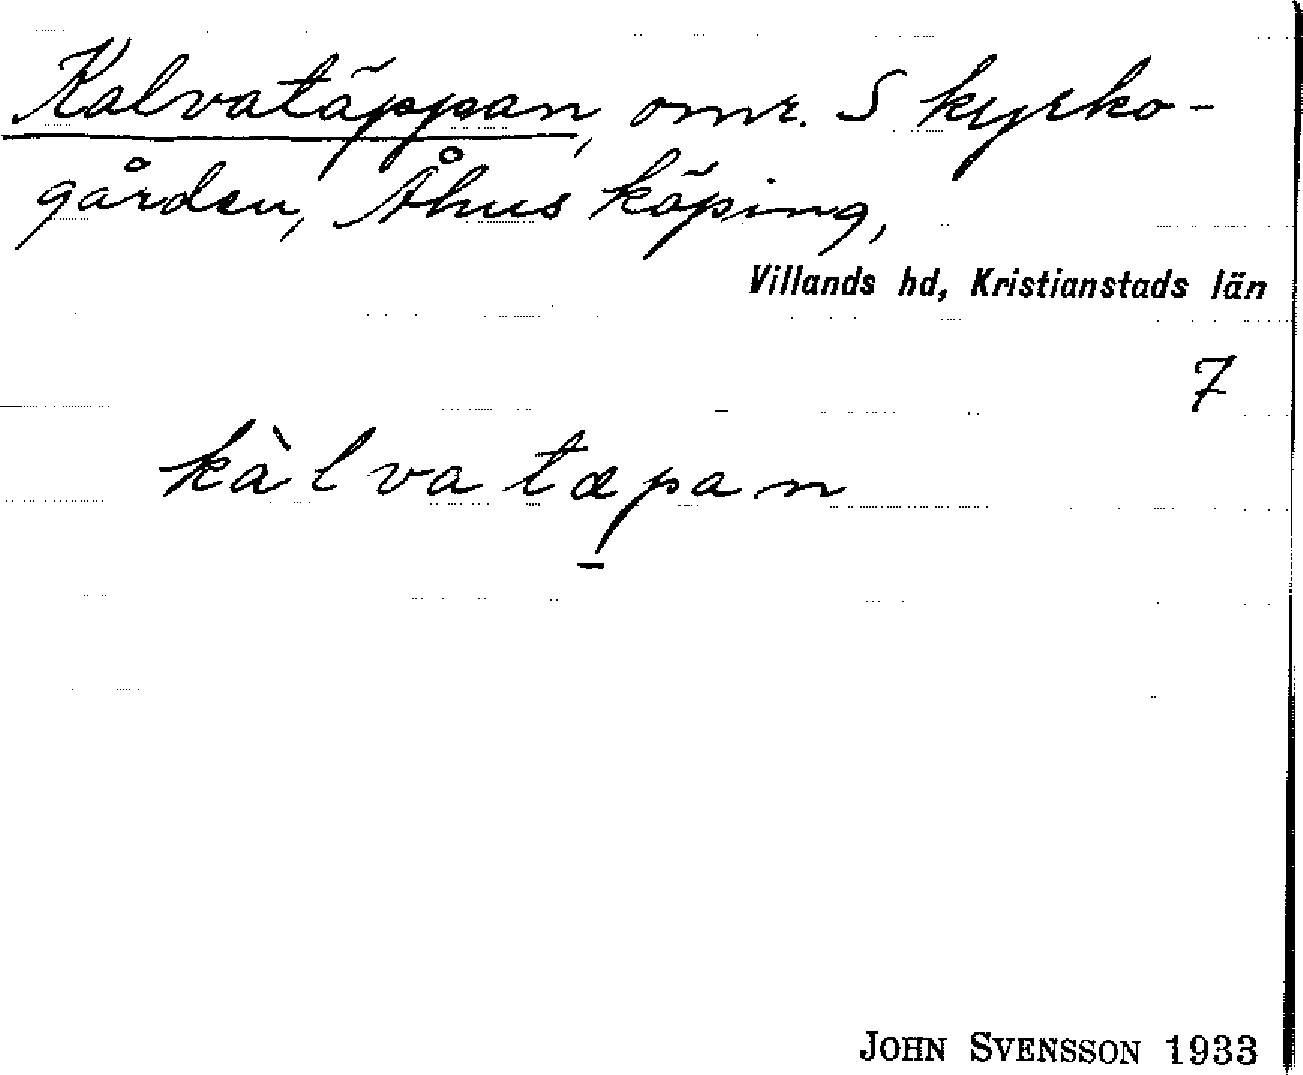 Kalvatäppan, omr. S kyrko-
gården, Åhus köping,
Villands hd, Kristianstads län
7
kàlvatæpan
JOHN SVENSSON 1933